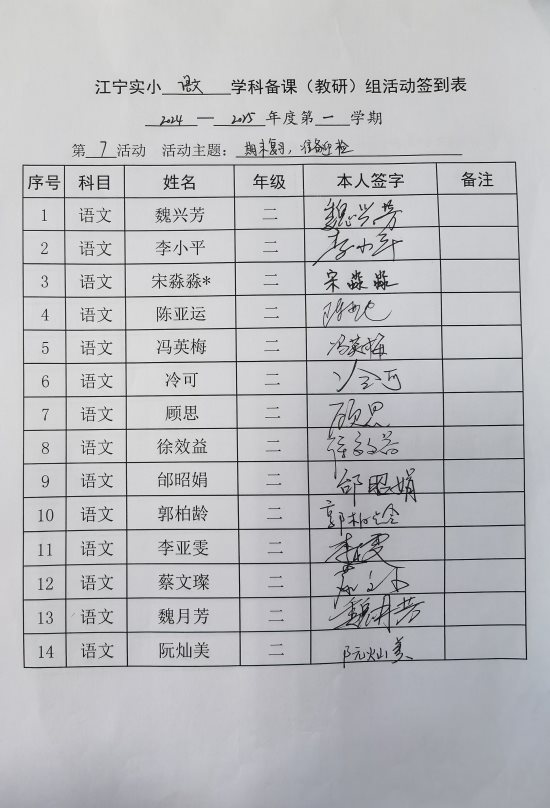 江宁实小 语文 学科备课（教研）组活动签到表
2024 — 2025 年度第 一 学期
第 7 活动 活动主题：期末复习，准备迎检
序号 科目 姓名 年级 本人签字 备注
1 语文 魏兴芳 二 魏兴芳
2 语文 李小平 二 李小平
3 语文 宋淼淼* 二 宋淼淼
4 语文 陈亚运 二 陈亚运
5 语文 冯英梅 二 冯英梅
6 语文 冷可 二 冷可
7 语文 顾思 二 顾思
8 语文 徐效益 二 徐效益
9 语文 邰昭娟 二 邰昭娟
10 语文 郭柏龄 二 郭柏龄
11 语文 李亚雯 二 李亚雯
12 语文 蔡文璨 二
13 语文 魏月芳 二 魏月芳
14 语文 阮灿美 二 阮灿美